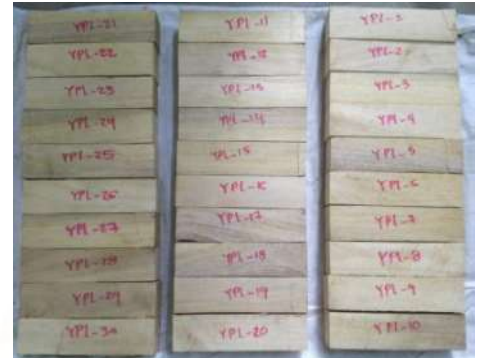 YPL-21
YPL-22
YPL-23
YPL-24
YPL-25
YPL-26
YPL-27
YPL-28
YPL-29
YPL-30
YPL-11
YPL-12
YPL-13
YPL-14
YPL-15
YPL-16
YPL-17
YPL-18
YPL-19
YPL-20
YPL-1
YPL-2
YPL-3
YPL-4
YPL-5
YPL-6
YPL-7
YPL-8
YPL-9
YPL-10